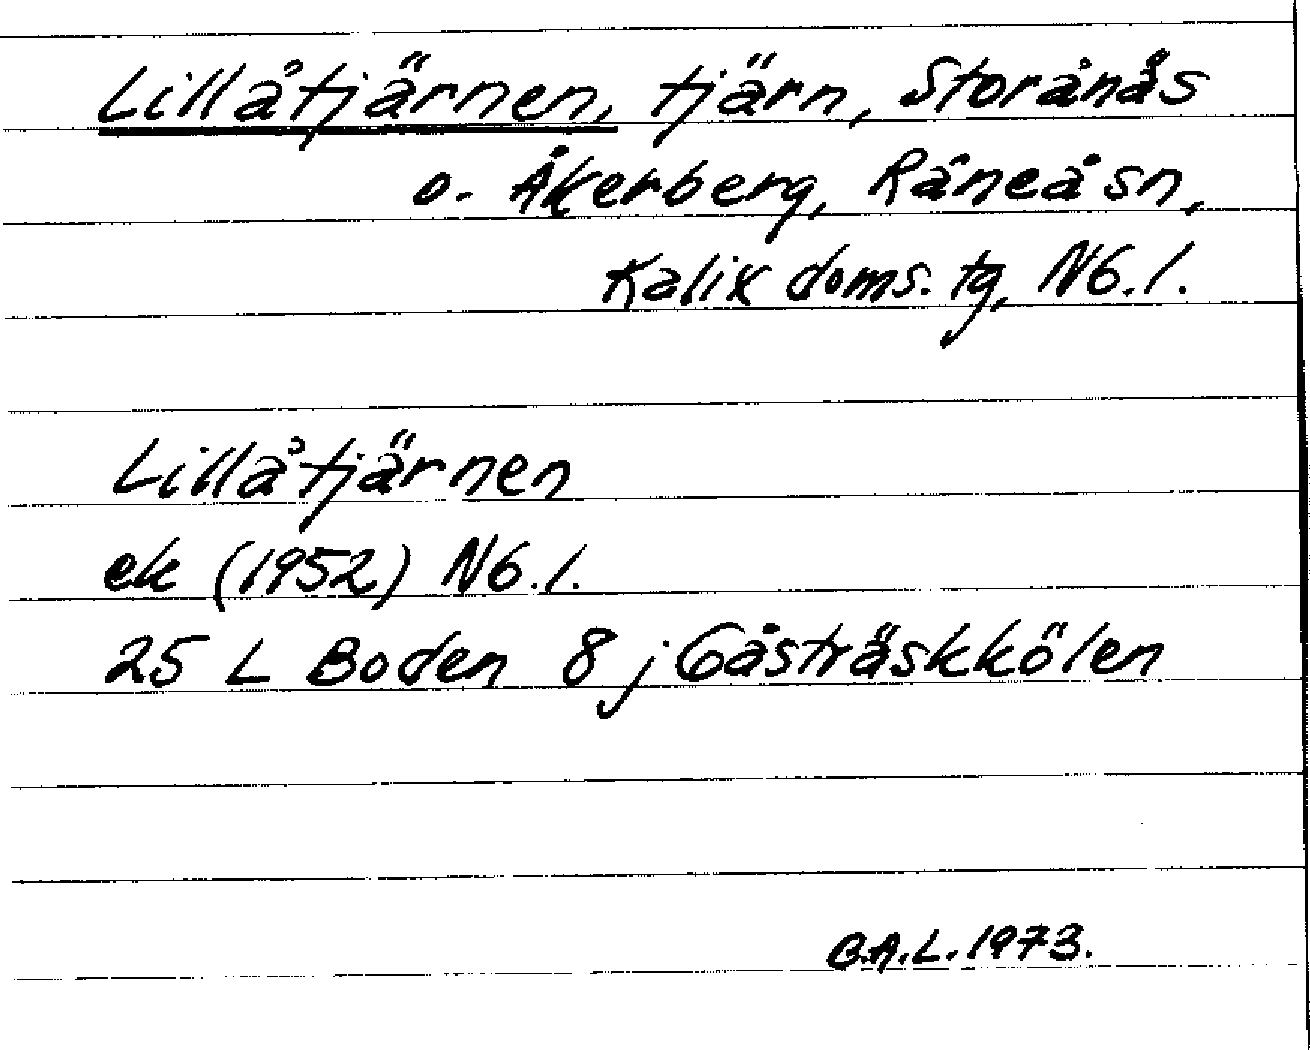 Lillåtjärnen, tjärn, Storånäs
o. Åkerberg, Råneå sn,
Kalix doms. tg, Nb.l.
Lillåtjärnen
ek (1952) Nb.l.
25 L Boden 8 j Gåsträskkölen
B.A.L. 1973.